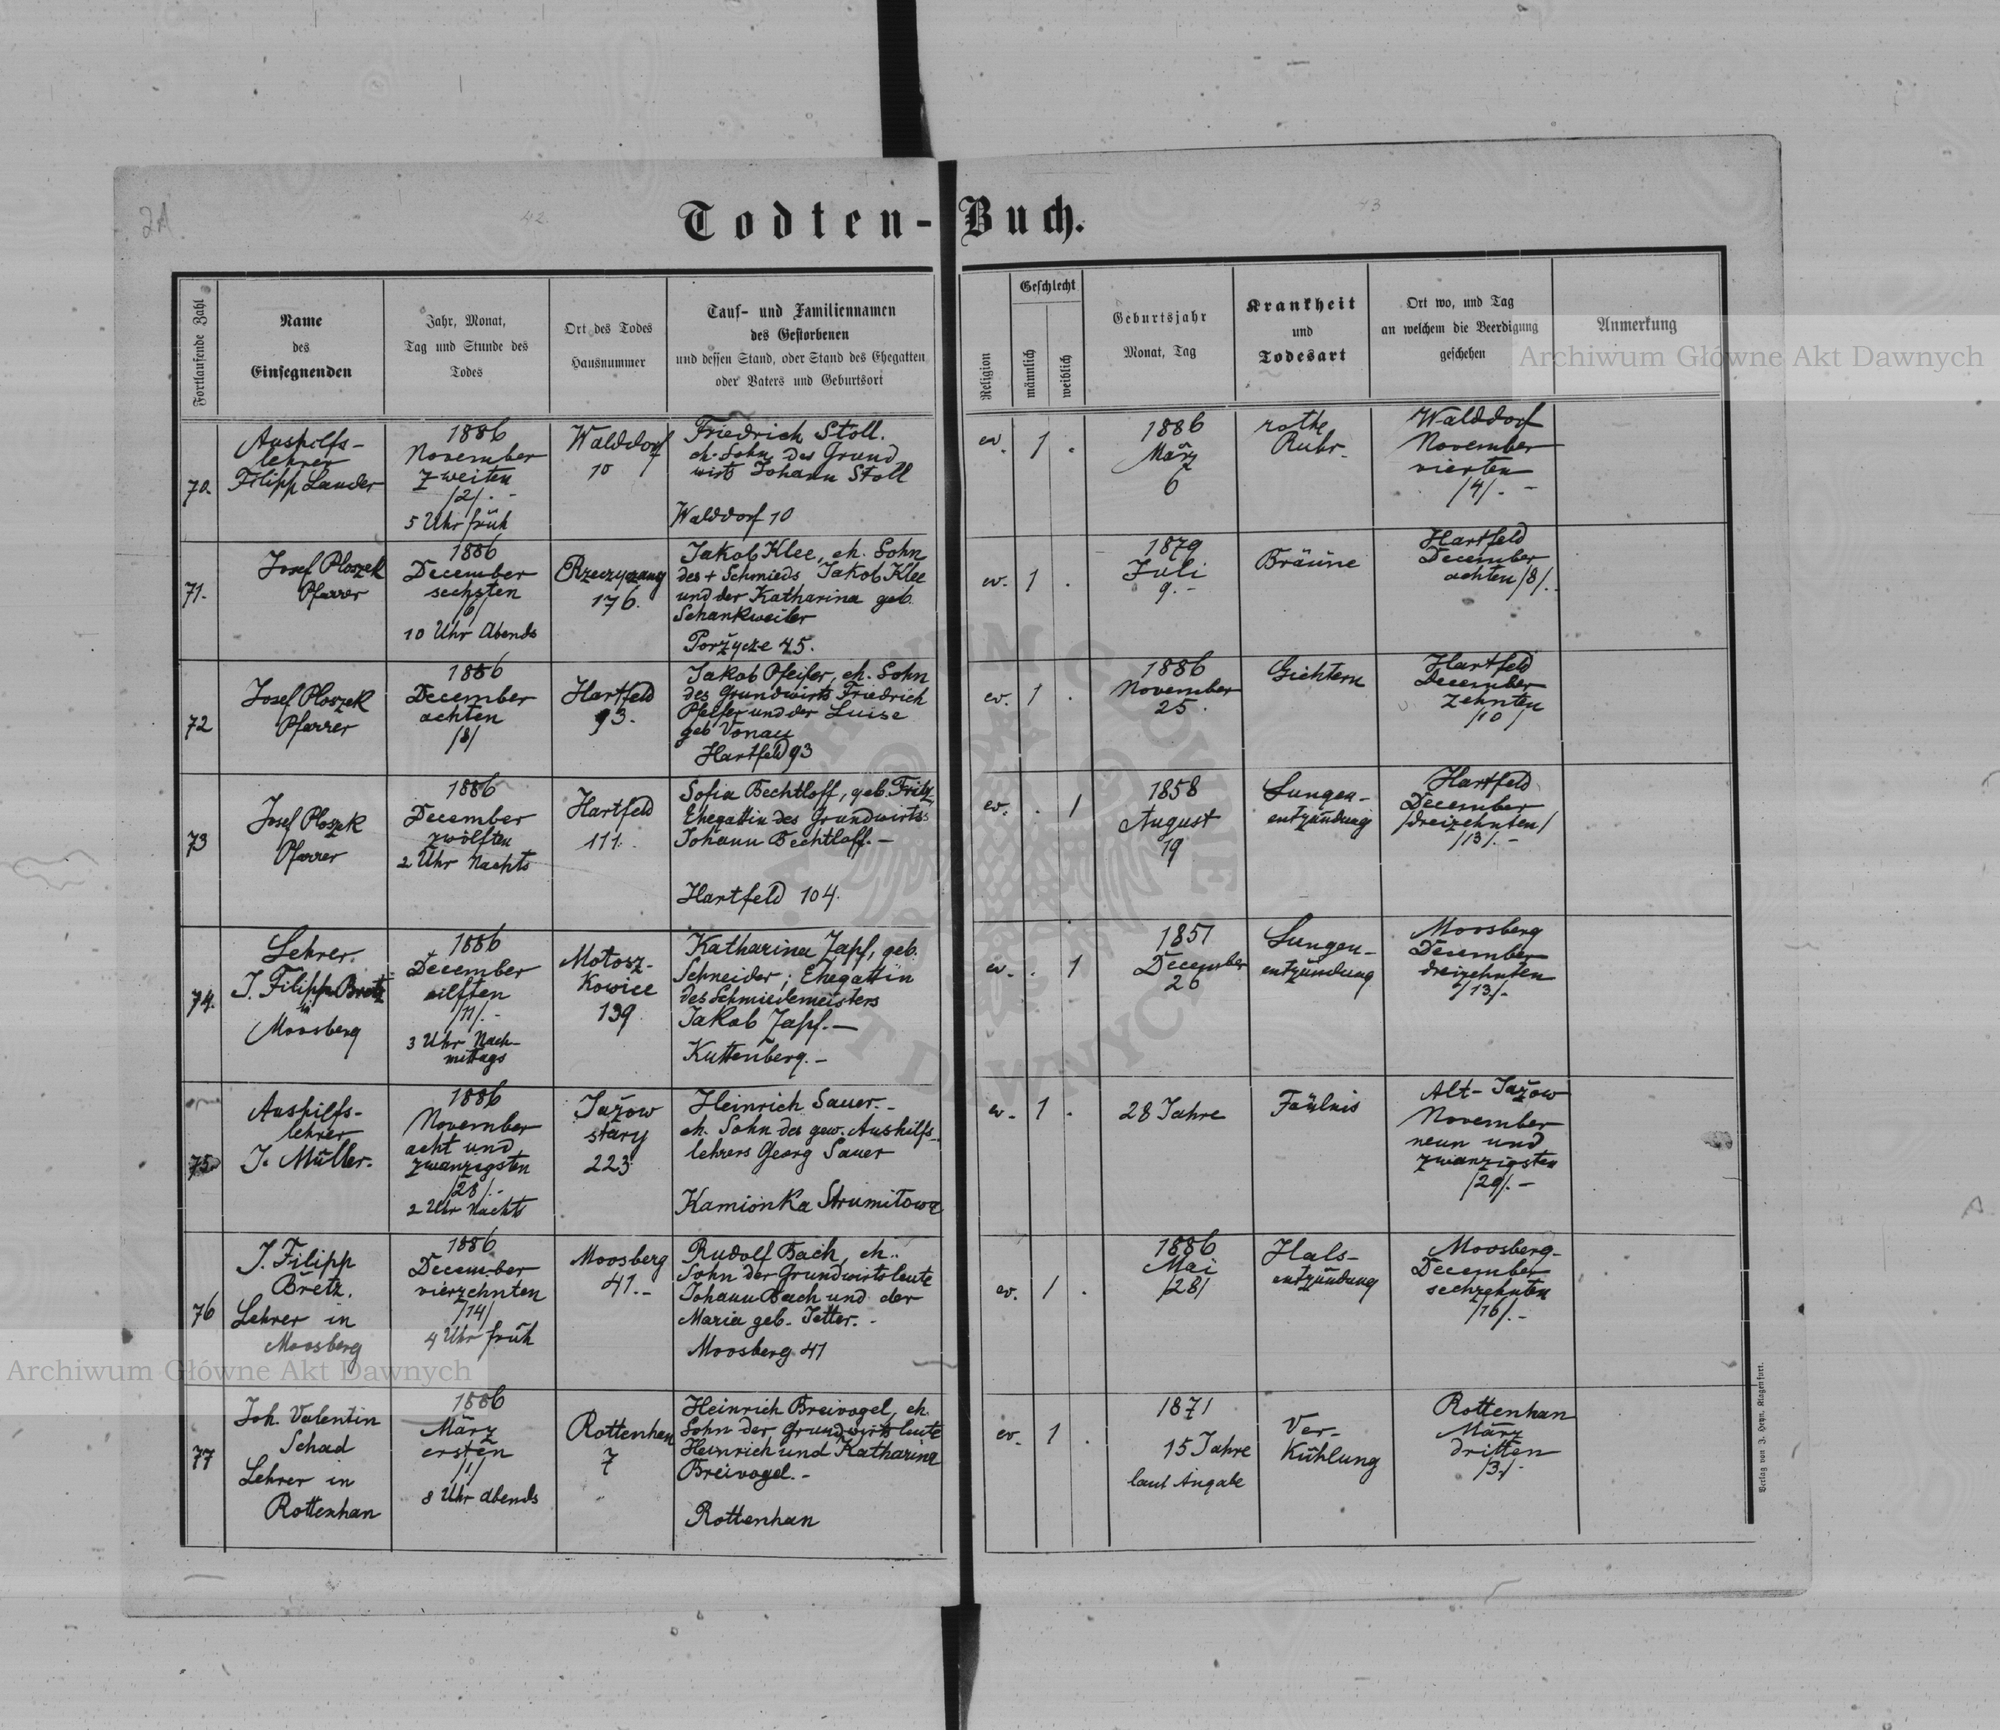 2A.
42.
43
Todten-Buch.
Fortlaufende Zahl
Name
des
Einsegnenden
Jahr, Monat,
Tag und Stunde des
Todes
Ort des Todes
Hausnummer
Tauf- und Familiennamen
des Gestorbenen
und dessen Stand, oder Stand des Ehegatten
oder Vaters und Geburtsort
Religion
Geschlecht
männlich
weiblich
Geburtsjahr
Monat, Tag
Krankheit
und
Todesart
Ort wo, und Tag
an welchem die Beerdigung
geschehen
Anmerkung
70.
Aushilfs-
lehrer
Filipp Lander
1886
November
zweiten
/2/. -
5 Uhr früh
Walddorf
10
Friedrich Stoll.
eh. Sohn des Grund
wirts Johann Stoll
Walddorf 10
ev.
1
.
1886
März
6
rothe
Ruhr.
Walddorf
November
vierten
/4/. -
71.
Josef Ploszek
Pfarrer
1886
December
sechsten
/6/
10 Uhr Abends
Rzeczyczany
176.
Jakob Klee, eh. Sohn
des + Schmieds Jakob Klee
und der Katharina geb.
Schankweiler
Porzycze 45.
ev.
1
.
1879
Juli
9. -
Bräune
Hartfeld
December
achten /8/.
72
Josef Ploszek
Pfarrer
1886
December
achten
/8/
Hartfeld
93.
Jakob Pfeifer, eh. Sohn
des Grundwirts Friedrich
Pfeifer und der Luise
geb Vonau
Hartfeld 93
ev.
1
.
1886
November
25.
Gichtern
Hartfeld
December
zehnten
/10/
73
Josef Ploszek
Pfarrer
1886
December
zwölften
2 Uhr Nachts
Hartfeld
111.
Sofia Bechtloff, geb. Fritz,
Ehegattin des Grundwirts
Johann Bechtloff. -
Hartfeld 104.
ev.
.
1
1858
August
19
Lungen-
entzündung
Hartfeld
December
/dreizehnten/
/13/. -
74.
Lehrer.
J. Filipp Bretz
in
Moosberg
1886
December
eilften
/11/. -
3 Uhr Nach-
mittags
Motosz-
kowice
139.
Katharina Zapf, geb.
Schneider; Ehegattin
des Schmiedemeisters
Jakob Zapf. -
Kuttenberg. -
ev.
.
1
1851
December
26
Lungen-
entzündung
Moosberg
December
dreizehnten
/13/. -
75
Aushilfs-
lehrer
J. Müller.
1886
November
acht und
zwanzigsten
/28/. -
2 Uhr Nachts
Jażow
stary
223
Heinrich Sauer. -
eh. Sohn des gew. Aushilfs-
lehrers Georg Sauer
Kamionka Strumiłowa
ev.
1
.
28 Jahre
Fäulnis
Alt- Jażow
November
neun und
zwanzigsten
/29/. -
76
J. Filipp
Bretz.
Lehrer in
Moosberg
1886
December
vierzehnten
/14/
4 Uhr früh
Moosberg
41. -
Rudolf Bach, eh.
Sohn der Grundwirtsleute
Johann Bach und der
Maria geb. Jetter. -
Moosberg 41
ev.
1
.
1886
Mai
/28/
Hals-
entzündung
Moosberg-
December
sechzehnten
/16/. -
77
Joh. Valentin
Schad
Lehrer in
Rottenhan
1886
März
ersten
/1/
8 Uhr Abends
Rottenhan
7
Heinrich Breivogel, eh.
Sohn der Grundwirtsleute
Heinrich und Katharina
Breivogel. -
Rottenhan
ev.
1
.
1871
15 Jahre
laut Angabe
Ver-
kühlung
Rottenhan
März
dritten
/3./
Verlag von J. Heyn, Klagenfurt.
Archiwum Główne Akt Dawnych
Archiwum Główne Akt Dawnych
ARCHIWUM GŁÓWNE AKT DAWNYCH